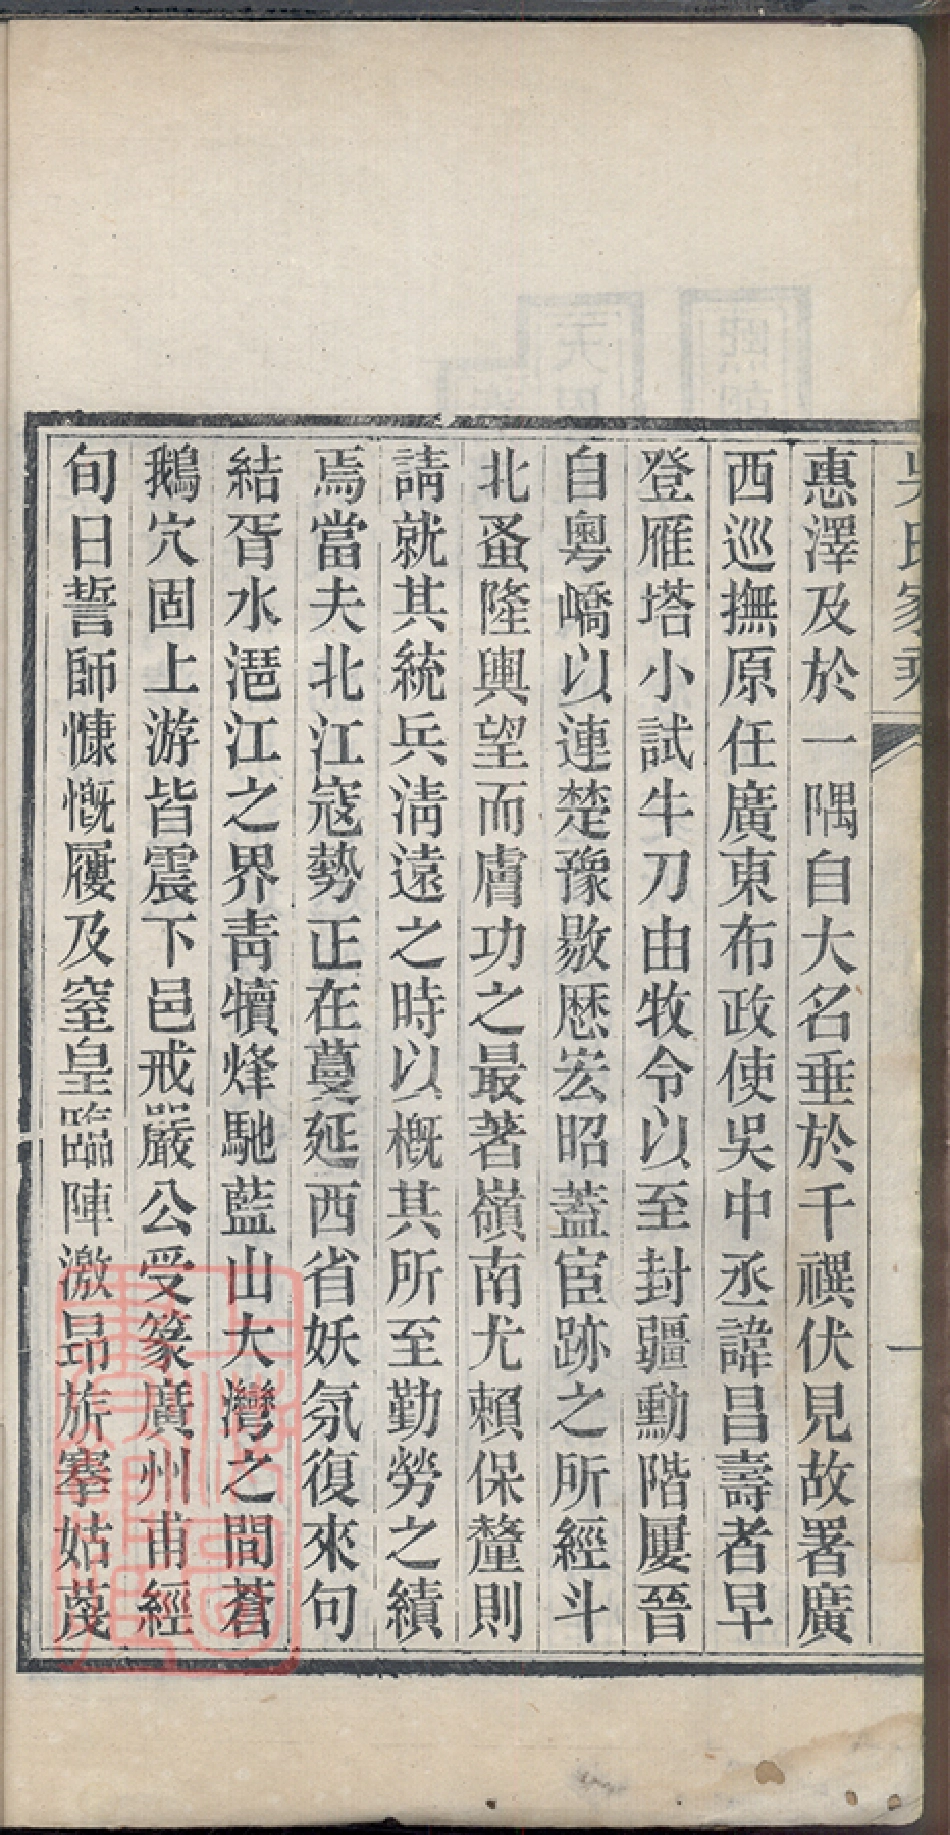 吳氏家乘
一
惠澤及於一隅自大名垂於千禩伏見故署廣
西巡撫原任廣東布政使吳中丞諱昌壽者早
登雁塔小試牛刀由牧令以至封疆勳階屢晉
自粵嶠以連楚豫敭歷宏昭蓋宦跡之所經斗
北蚤隆輿望而膚功之最著嶺南尤賴保釐則
請就其統兵淸遠之時以槪其所至勤勞之績
焉當夫北江寇勢正在蔓延西省妖氛復來句
結胥水滬江之界靑犢烽馳藍山大灣之間蒼
鵝穴固上游皆震下邑戒嚴公受篆廣州甫經
旬日誓師慷慨屨及窒皇臨陣激昻旂搴姑蔑